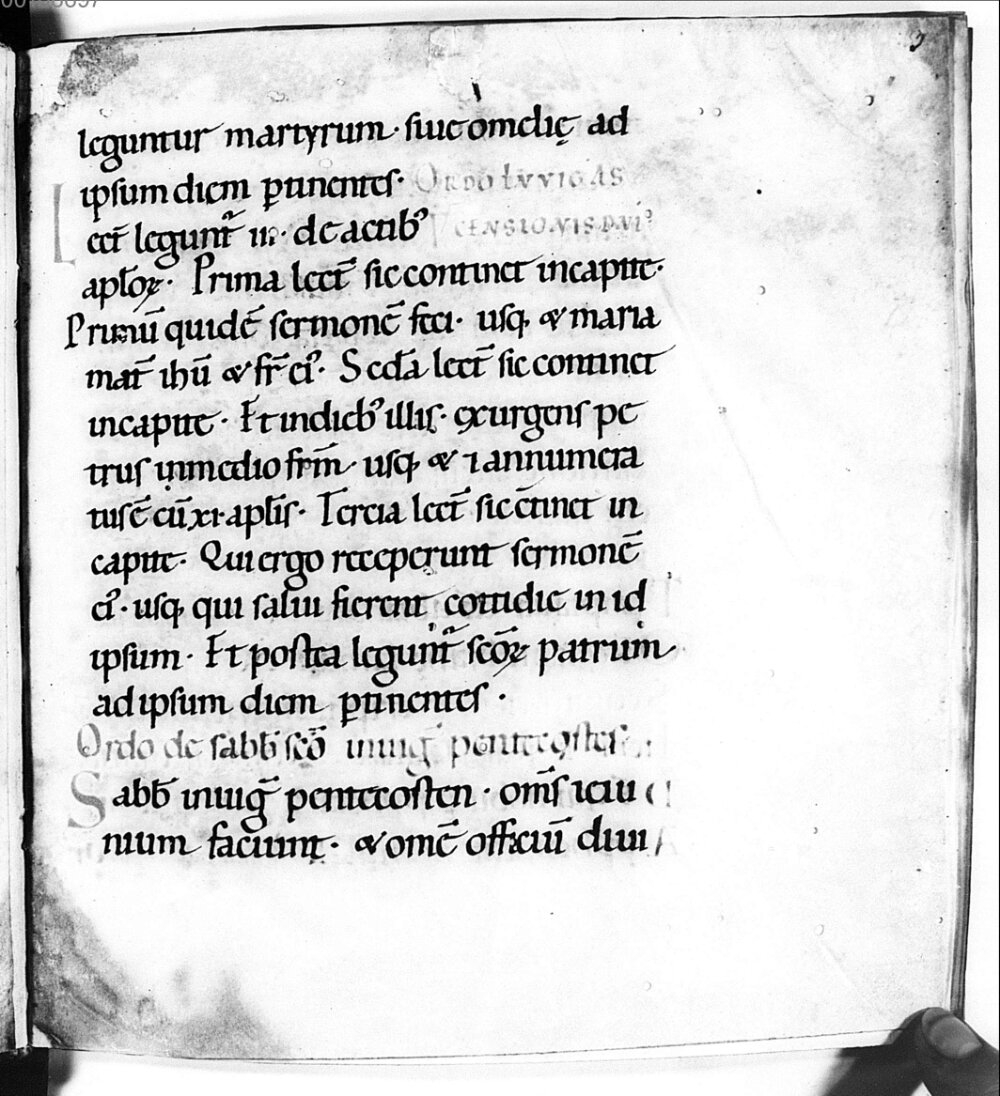 leguntur martyrum· siue omelię ad
ipsum diem ꝑtinentes· Ordo ł vvig as
Lect̄ legunt᷑ iii· de actib᾿ CENSIONIS DNI᾿
apl̄oꝝ· Prima lect̄ sic continet incapite·
Primū quidē sermonē feci· usq; & maria
mat̄ ihū & fr̄ ei᾿· Secd̄a lect̄ sic continet
incapite· Et indieb᾿ illis· exurgens pe
trus inmedio fr̄m· usq; & iannumera
tusē cū xi· apl̄is· Tercia lect̄ sic c̄tinet in
capite· Qui ergo receperunt sermonē
ei᾿· usq; qui salui fierent cottidie in id
ipsum· Et postea legunt᷑ sc̄oꝝ patrum
ad ipsum diem ꝑtinentes·
Ordo de sabb̄ sc̄o inuiḡ pentecostes·
Sabb̄ inuiḡ pentecosten· om̄s ieiu
nium faciunt· & omē officiū diui